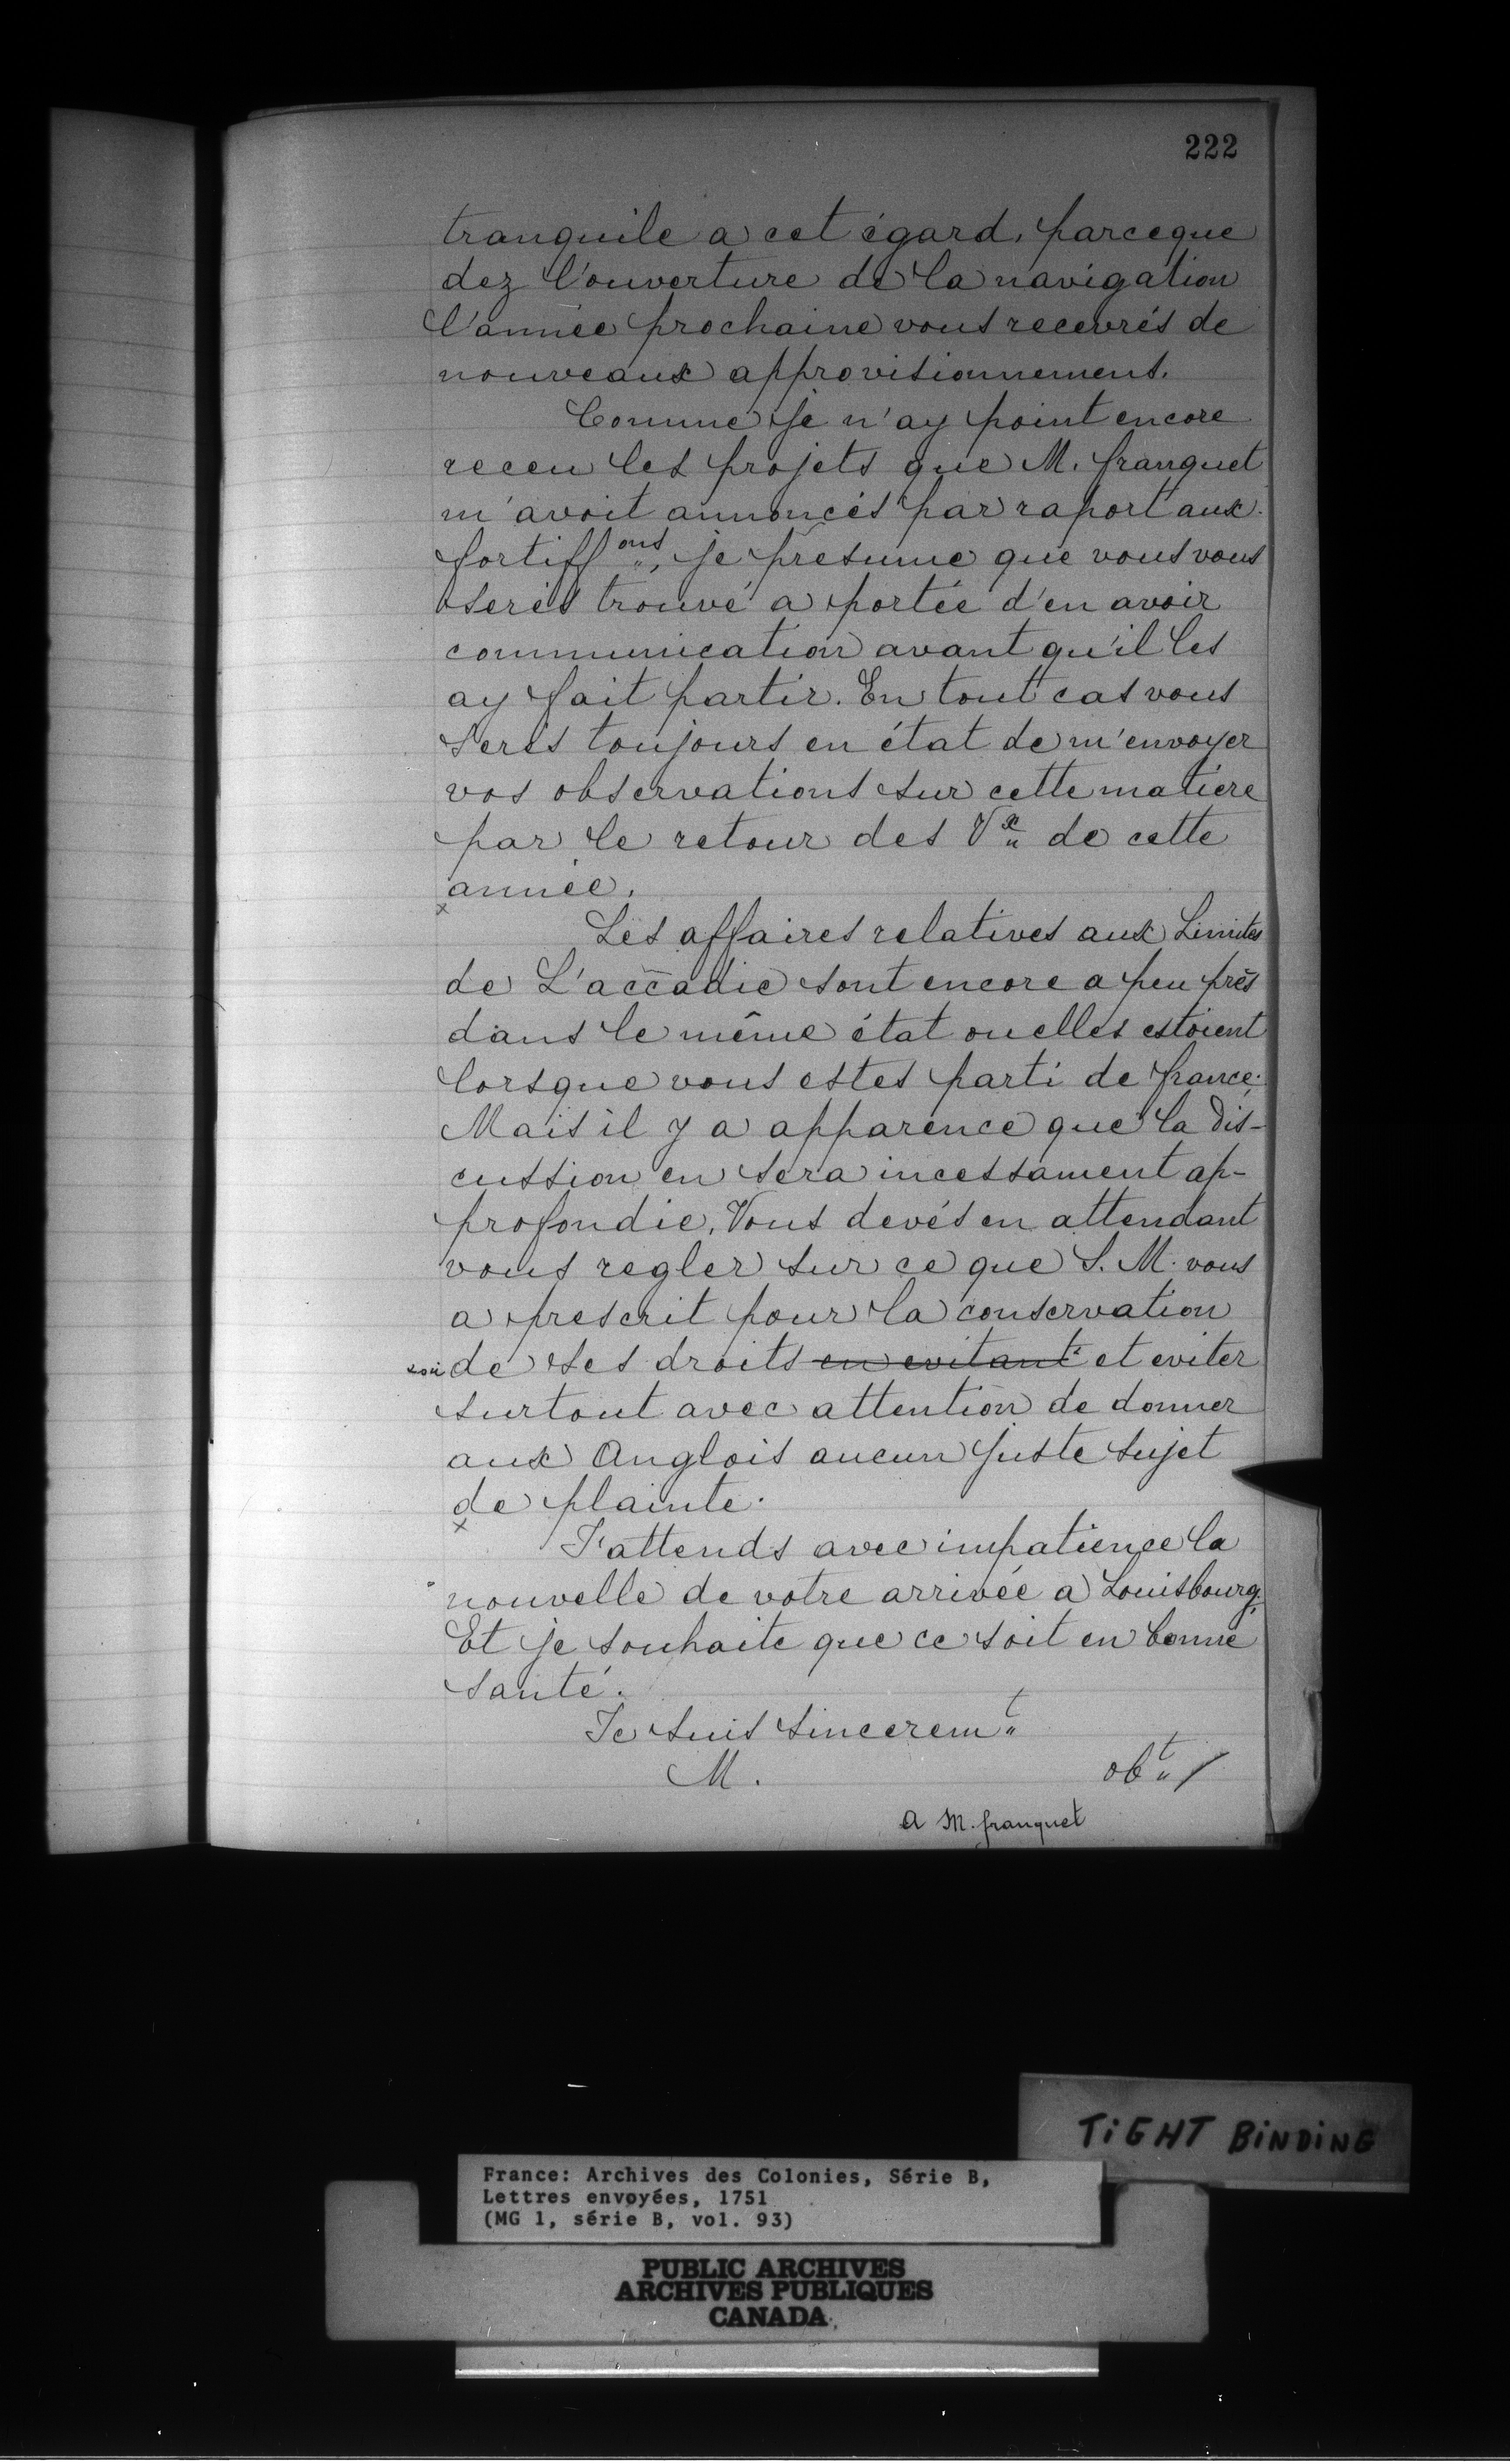 222
tranquile a cet égard, parceque
dez l'ouverture de la navigation
l'année prochaine vous recevrés de
nouveaux approvisionnement.
Comme je n'ay point encore
receu les projets que M. franquet
m'avoit annoncés par raport aux
fortiff ons, je presume que vous vous
serés trouvé a portée d'en avoir
communication avant qu'il les
ay fait partir. En tout cas vous
serés toujours en état de m'envoyer
vos observations sur cette matiere
par le retour des Vx de cette
année.
x
Les affaires relatives aux Limites
de L'accadie sont encore a peu près
dans le même état ou elles estoient
lorsque vous estes parti de france;
Mais il y a apparence que la dis-
cussion en sera incessament ap-
profondie. Vous devés en attendant
vous regler sur ce que S. M. vous
a prescrit pour la conservation
de ses droits en evitant et eviter
surtout avec attention de donner
aux Anglois aucun juste sujet
de plainte.
x
J'attends avec impatience la
nouvelle de votre arrivée a Louisbourg.
Et je souhaite que ce soit en bonne
santé.
Je suis sincerem t
M. ob t /
A M. franquet
TIGHT BINDING
France: Archives des Colonies, Série B,
Lettres envoyées, 1751
(MG 1, série B, vol. 93)
PUBLIC ARCHIVES
ARCHIVES PUBLIQUES
CANADA